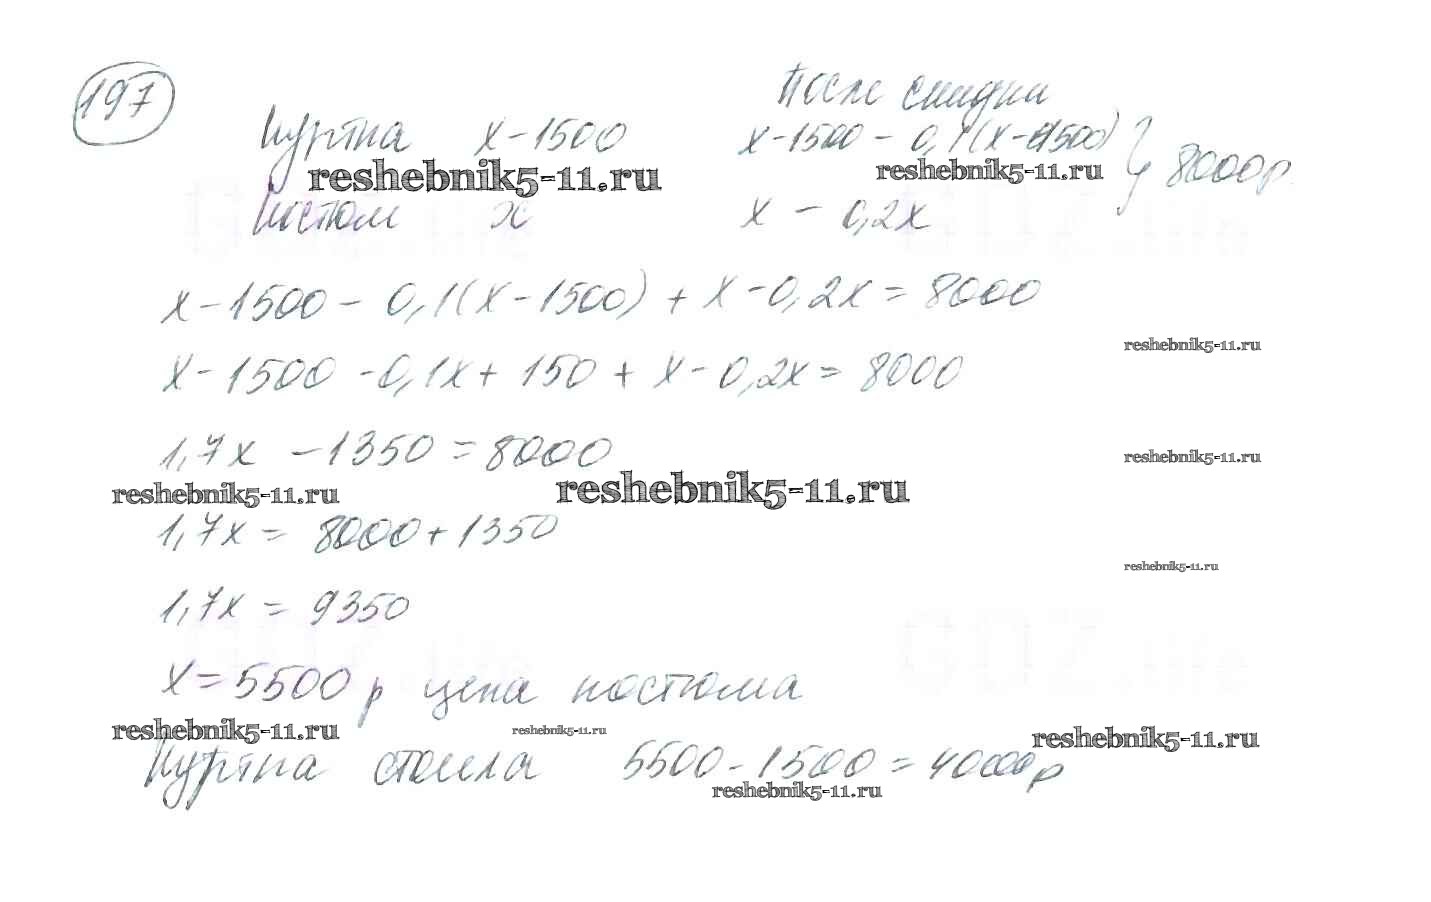 197
После скидки
Куртка x - 1500 x - 1500 - 0,1(x - 1500) } 8000р
reshebnik5-11.ru reshebnik5-11.ru
Костюм x x - 0,2x
GDZ.life GDZ.life
x - 1500 - 0,1(x - 1500) + x - 0,2x = 8000
reshebnik5-11.ru
x - 1500 - 0,1x + 150 + x - 0,2x = 8000
1,7x - 1350 = 8000
reshebnik5-11.ru
reshebnik5-11.ru reshebnik5-11.ru
1,7x = 8000 + 1350
reshebnik5-11.ru
1,7x = 9350
GDZ.life GDZ.life
x = 5500 р цена костюма
reshebnik5-11.ru reshebnik5-11.ru reshebnik5-11.ru
Куртка стоила 5500 - 1500 = 4000р
reshebnik5-11.ru